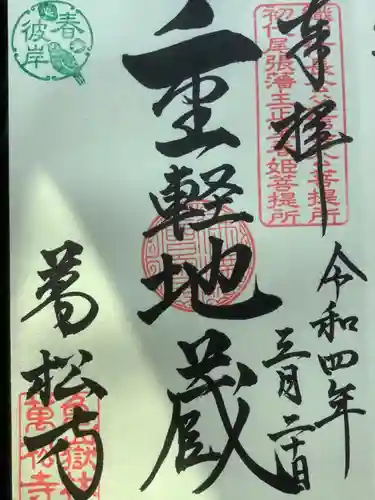 奉拝
令和四年
三月二十日
初代尾張藩主正室春姫菩提所
重軽地蔵
春彼岸
萬松寺
亀嶽林
萬松寺